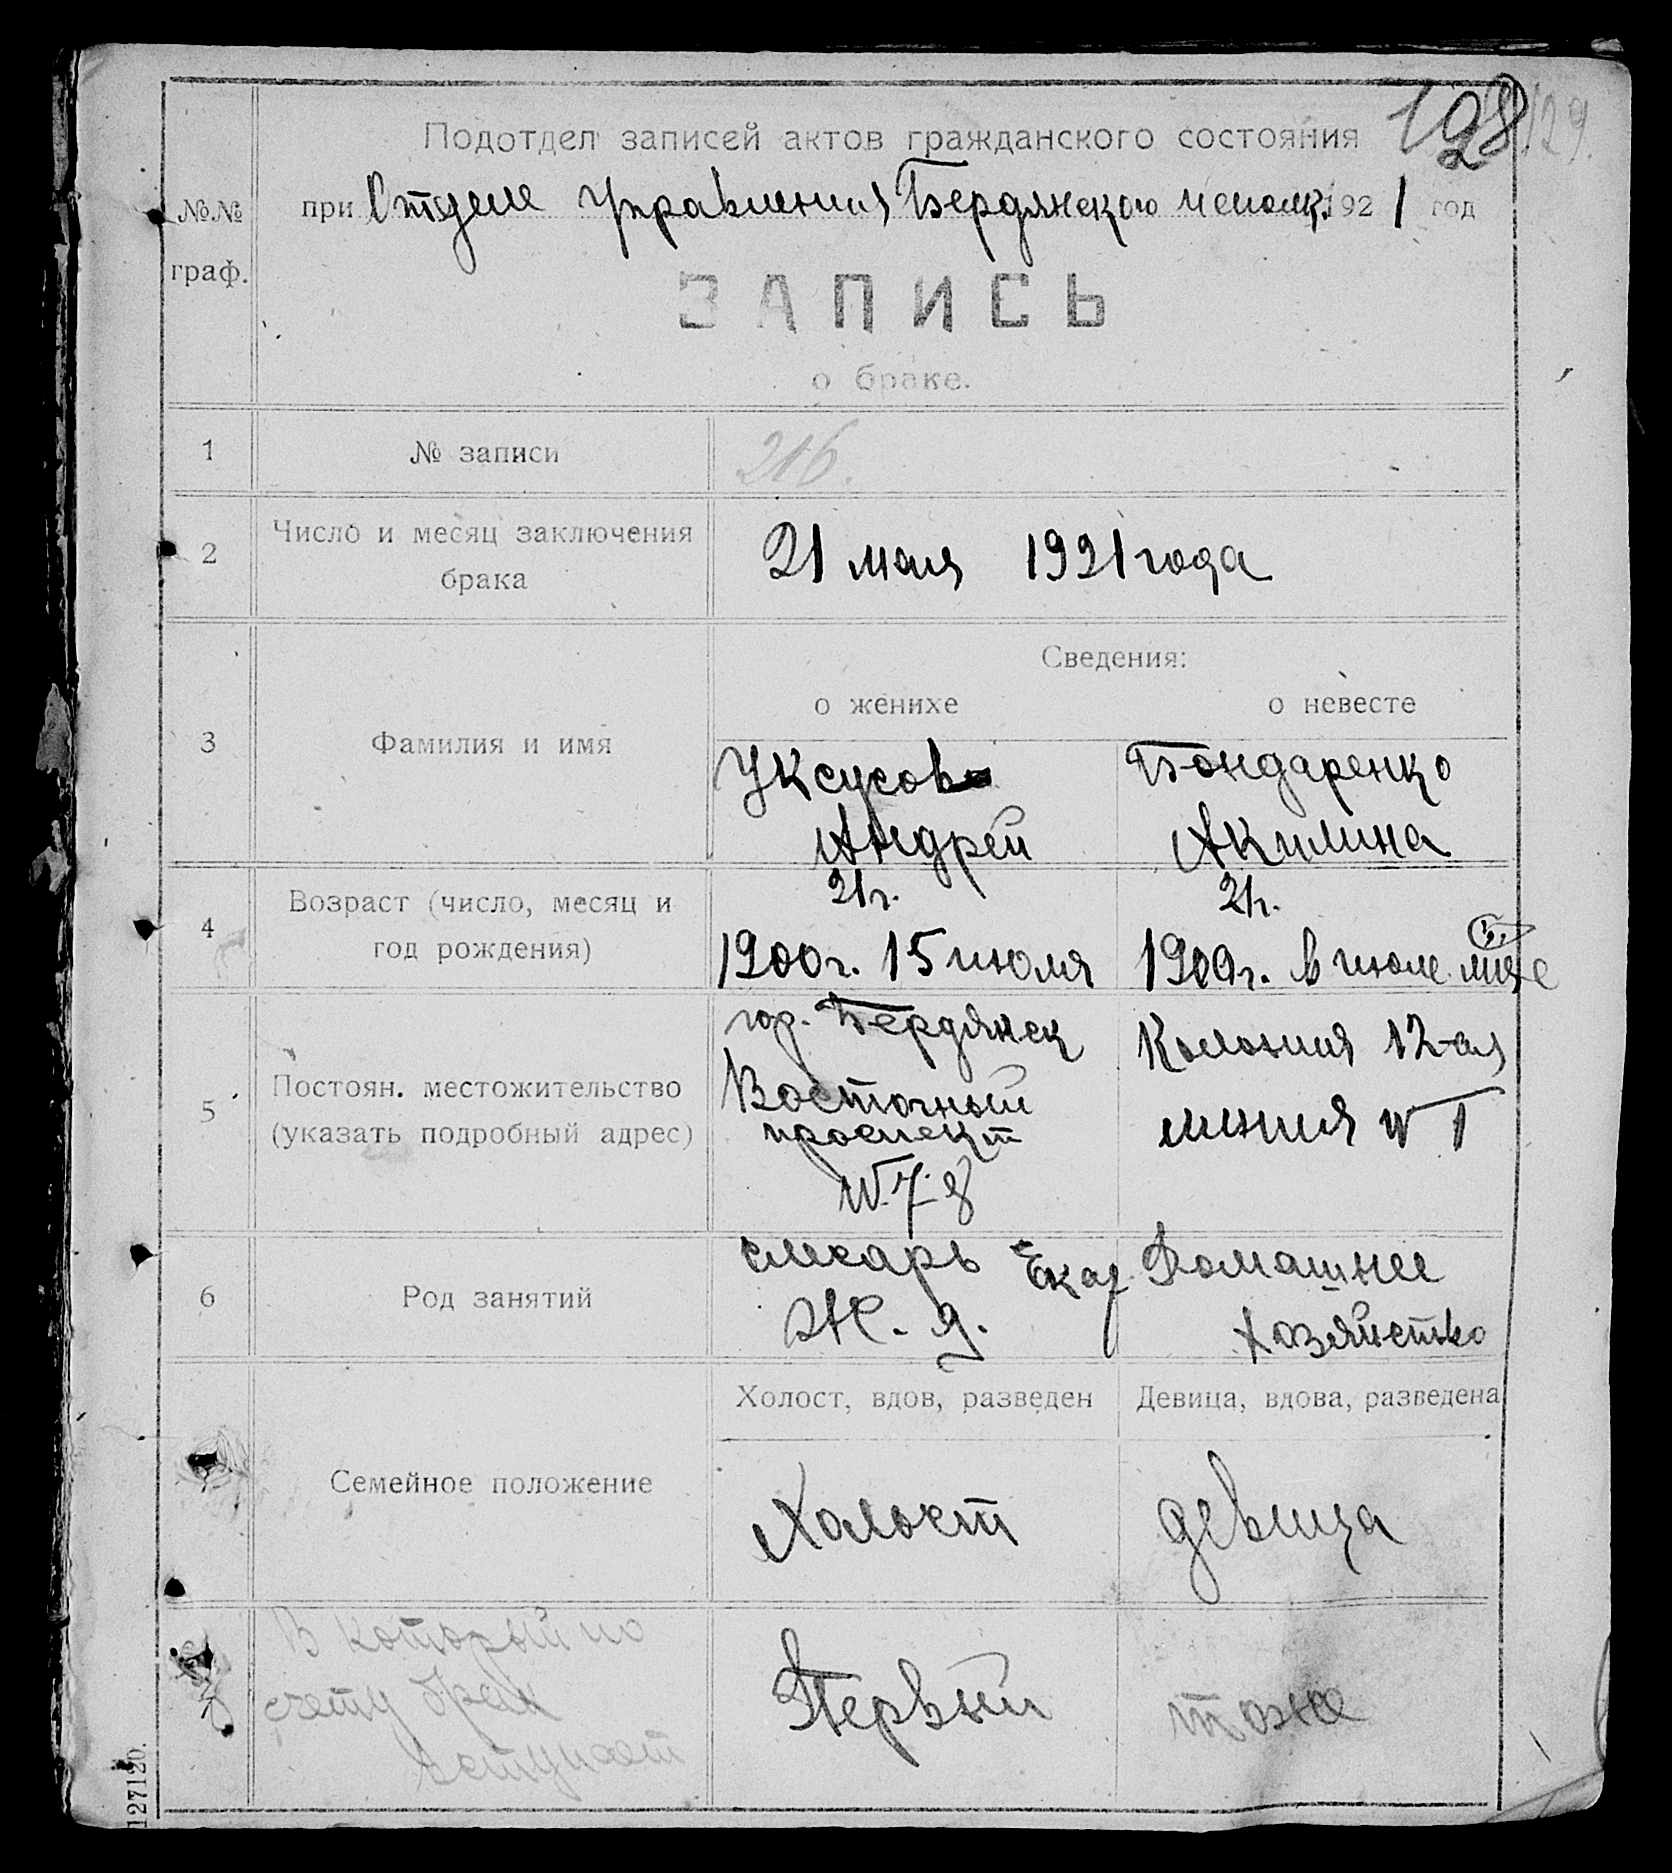 128 129.
Подотдел записей актов гражданского состояния
№№ граф.
при Отделе Управления Бердянского исполк. 1921 год
ЗАПИСЬ
о браке.
1 № записи 216.
2 Число и месяц заключения брака 21 мая 1921 года
Сведения:
о женихе о невесте
3 Фамилия и имя
Уксусов Бондаренко
Андрей Акилина
4 Возраст (число, месяц и год рождения)
21 г. 21 г.
1900 г. 15 июля 1900 г. в июле м-це
5 Постоян. местожительство (указать подробный адрес)
гор. Бердянск Колония 12-ая
Восточный линия № 1
проспект
№ 78
6 Род занятий
слесарь Екат. Домашнее
Ж. д. хозяйство
Холост, вдов, разведен Девица, вдова, разведена
Семейное положение
Холост девица
В который по
счету брак
вступает
Первый тоже
127120.